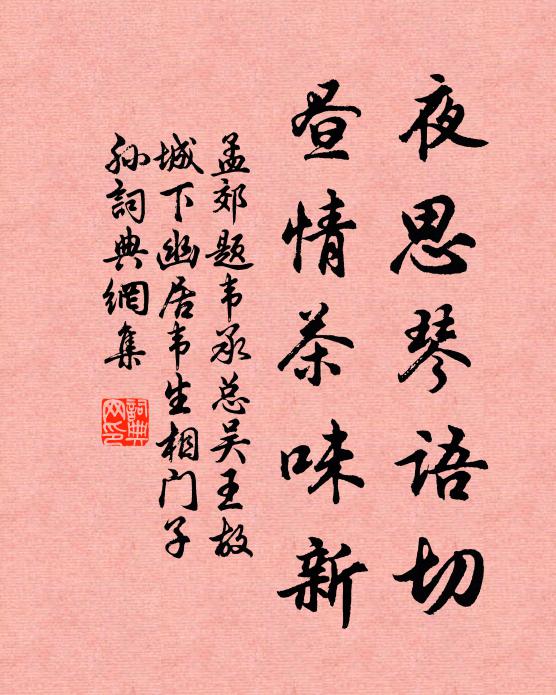 夜思琴语切
昼情茶味新
孟郊题韦承总吴王故
城下幽居韦生相门子
孙詞典網集
詞典网印